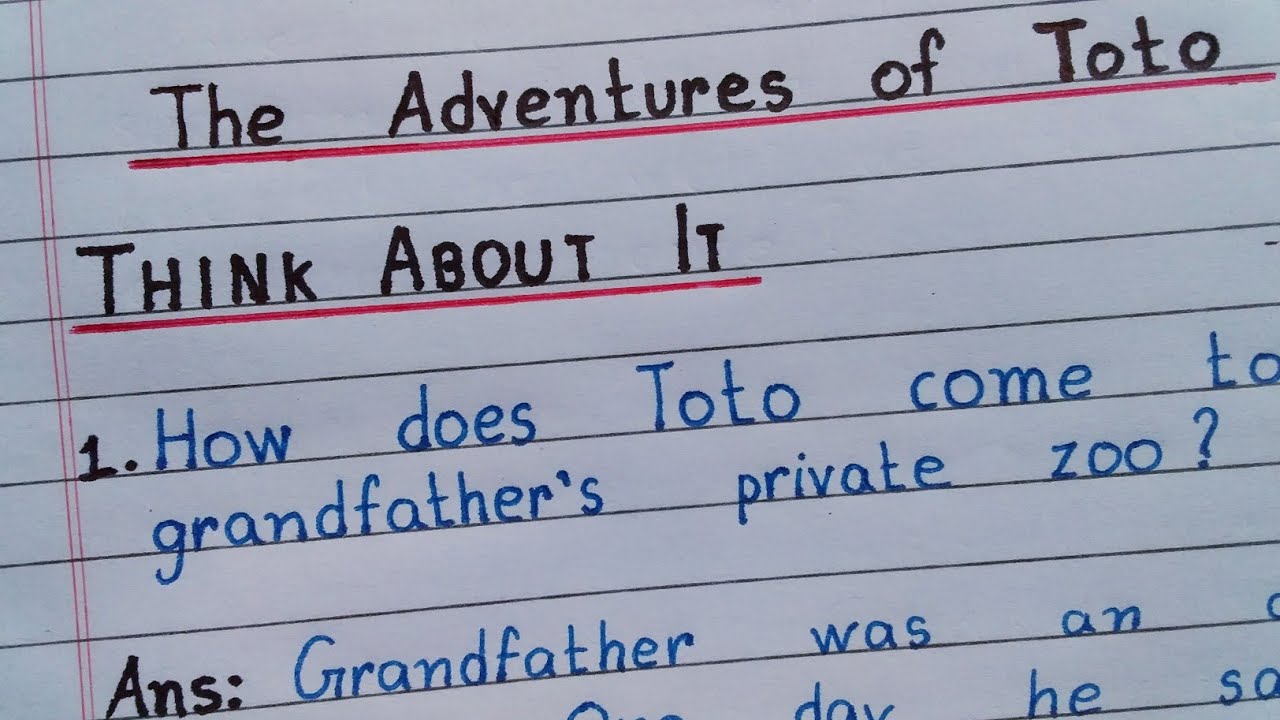 The Adventures of Toto
THINK ABOUT IT
1. How does Toto come to
grandfather's private zoo?
Ans: Grandfather was an
day he